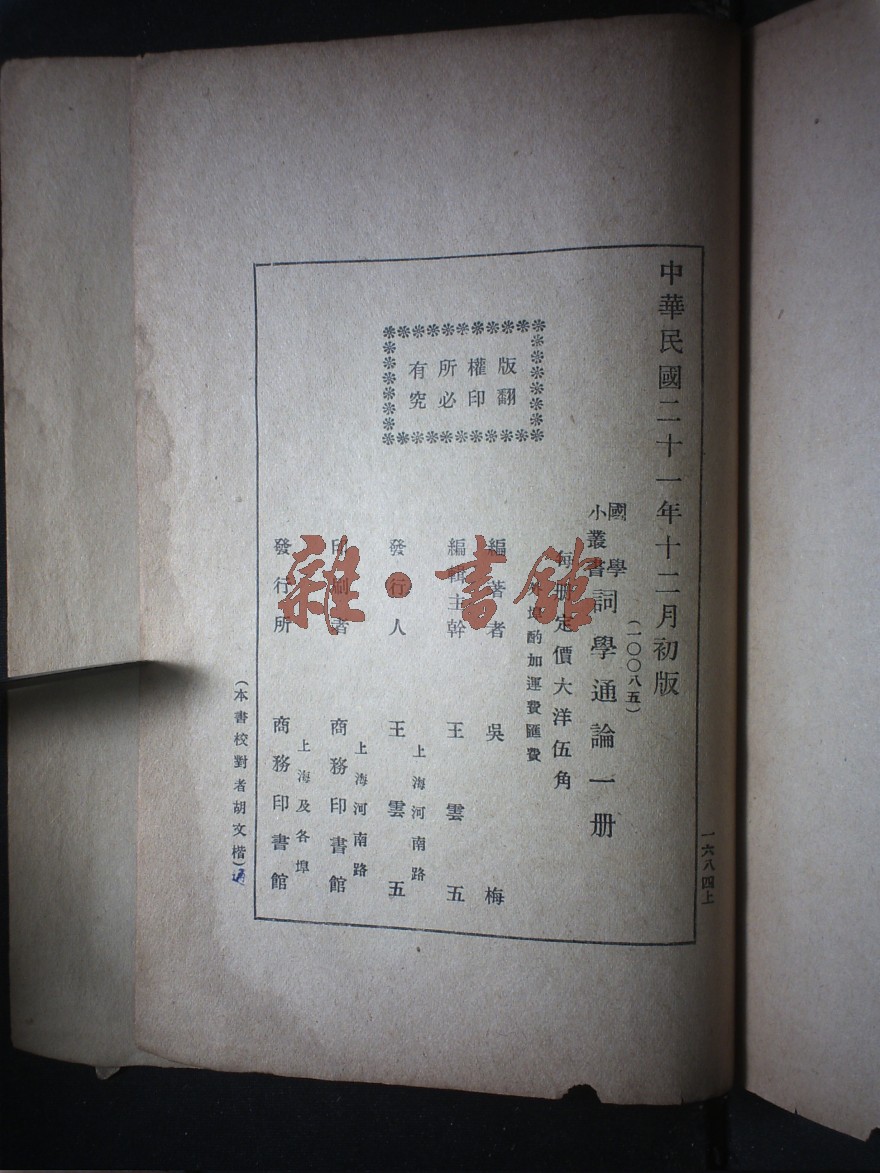 中華民國二十一年十二月初版
一六八四上
(一〇〇八五)
國學小叢書 詞學通論一册
每册定價大洋伍角
外埠酌加運費匯費
版權所有
翻印必究
編著者 吳梅
編輯主幹 王雲五
上海河南路
發行人 王雲五
上海河南路
印刷者 商務印書館
上海及各埠
發行所 商務印書館
(本書校對者胡文楷)
雜·書館